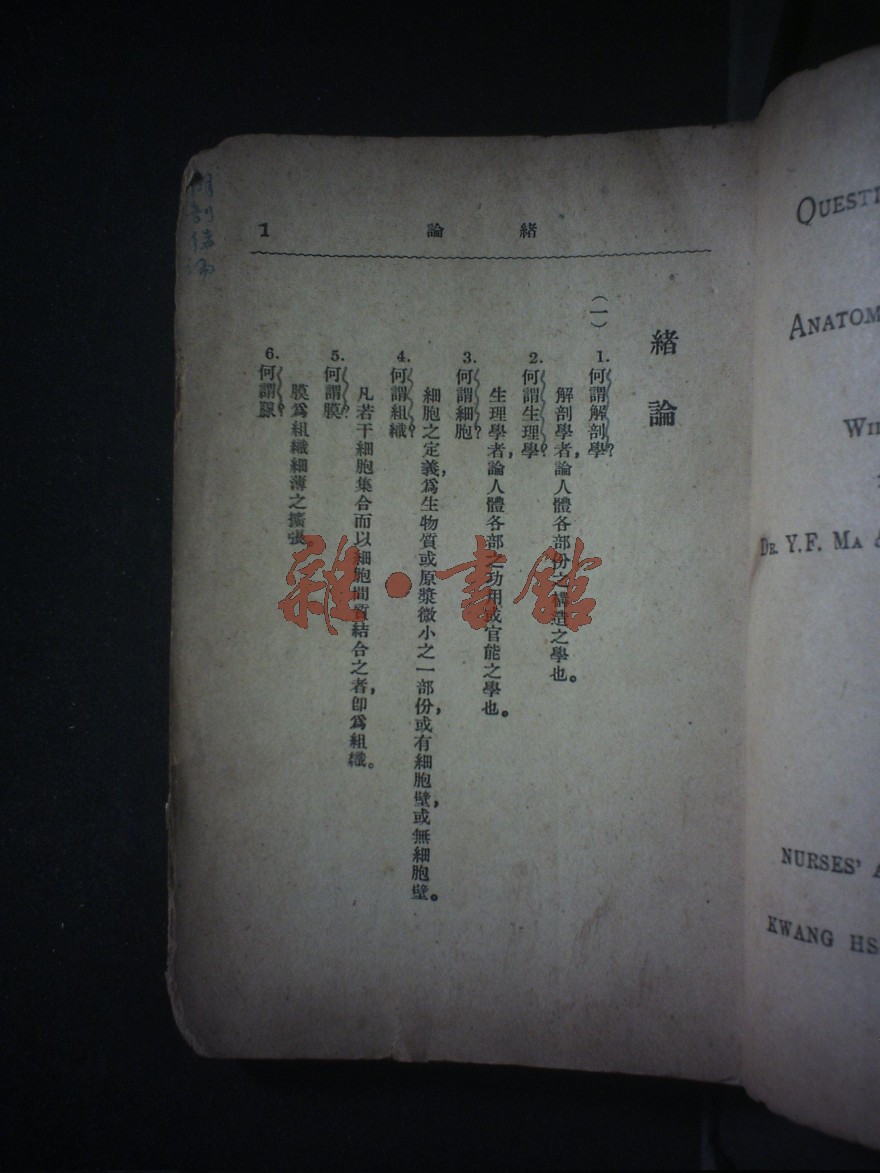 緒論
1
緒論
(一)
1.何謂解剖學?
解剖學者,論人體各部份之構造之學也。
2.何謂生理學?
生理學者,論人體各部之功用或官能之學也。
3.何謂細胞?
細胞之定義,爲生物質或原漿微小之一部份,或有細胞壁,或無細胞壁。
4.何謂組織?
凡若干細胞集合而以細胞間質結合之者,卽爲組織。
5.何謂膜?
膜爲組織細薄之擴張。
6.何謂腺?
雜·書館
QUESTI
ANATOM
WI
DR. Y.F. MA
NURSES' A
KWANG HS